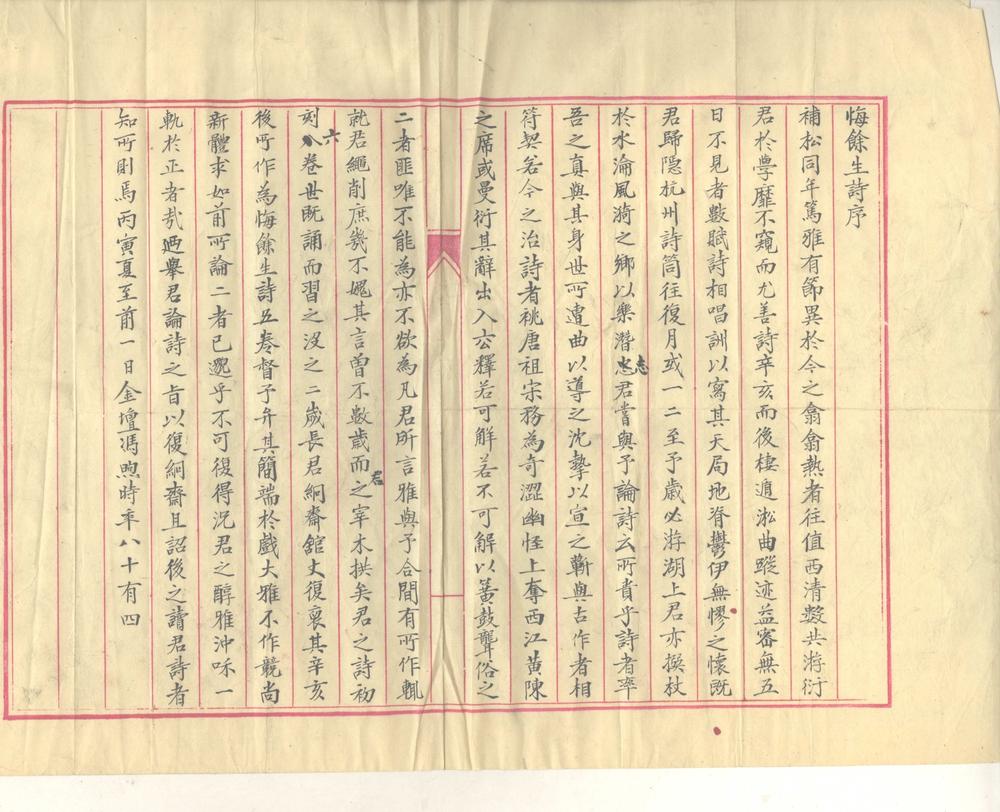 悔餘生詩序
補松同年篤雅有節異於今之翕翕熱者往值西清數共游衍
君於學靡不窺而尤善詩辛亥而後棲遁淞曲蹤迹益密無五
日不見者數賦詩相唱訓以寫其天局地脊鬱伊無憀之懷既
君歸隐杭州詩筒往復月或一二至予歲必游湖上君亦撰杖
於水淪風漪之鄉以樂潛志君嘗與予論詩云所貴乎詩者率
吾之真與其身世所遭曲以導之沈摯以宣之蘄與古作者相
符契若今之治詩者祧唐祖宋務為奇澀幽怪上奪西江黃陳
之席或曼衍其辭出入玄釋若可解若不可解以簧鼓聾俗之
二者匪唯不能為亦不欲為凡君所言雅與予合間有所作輒
就君繩削庶幾不媿其言曾不數歲而君之宰木拱矣君之詩初
刻六卷世既誦而習之沒之二歲長君絅齋舘丈復裒其辛亥
後所作為悔餘生詩五卷督予弁其簡端於戲大雅不作競尚
新體求如前所論二者已邈乎不可復得況君之醇雅沖咊一
軌於正者哉廼舉君論詩之旨以復絅齋且詔後之讀君詩者
知所則焉丙寅夏至前一日金壇馮煦時年八十有四